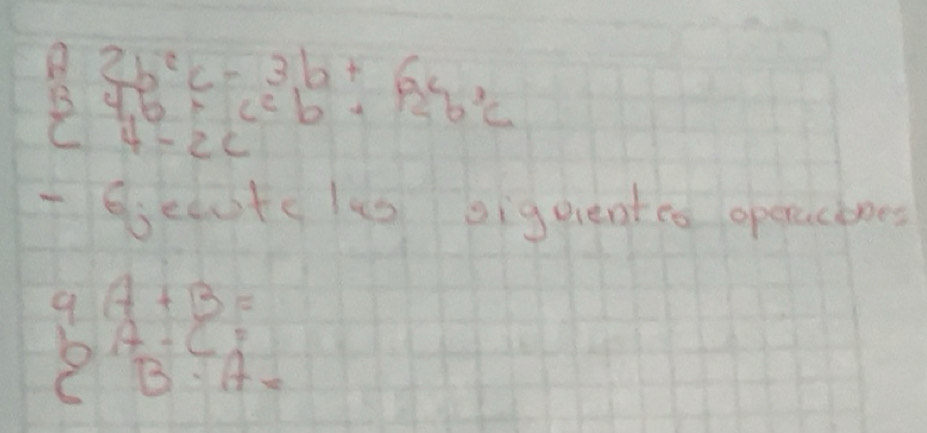 A 2b²c - 3b +
B 4b - c²b +
C 4 - 2c
- Ejecute las siguientes operaciones
a A + B =
b A - C =
c B - A =